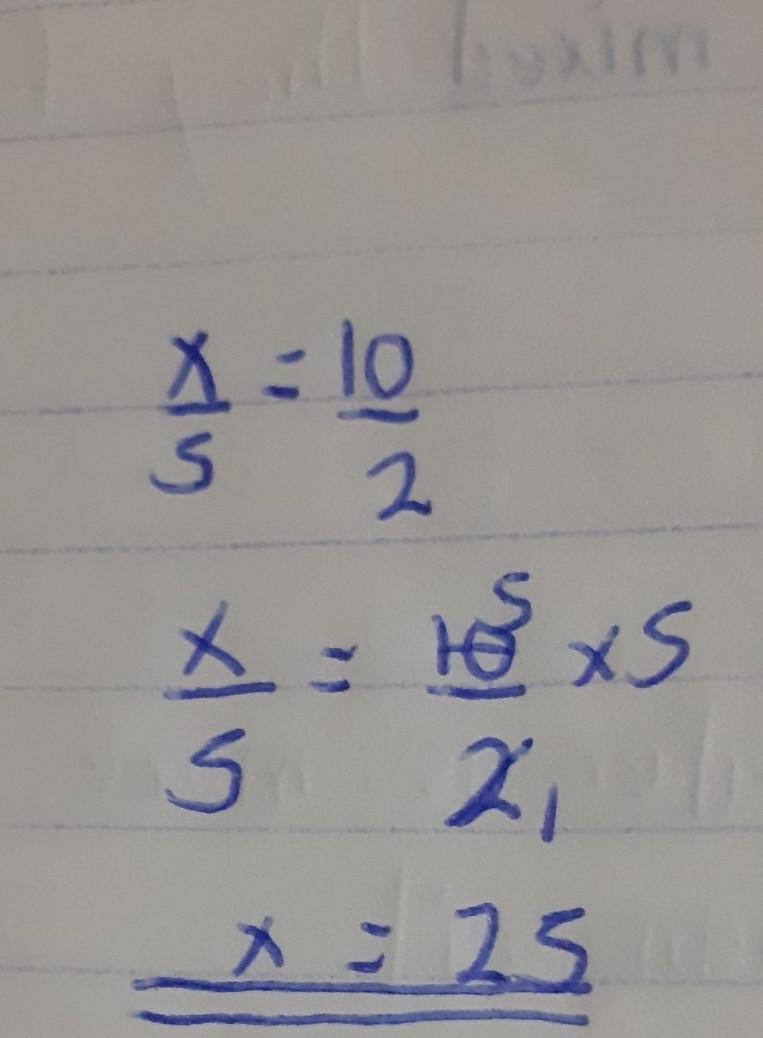 x/5 = 10/2
x/5 = 10 5/2 1 × 5
x = 25